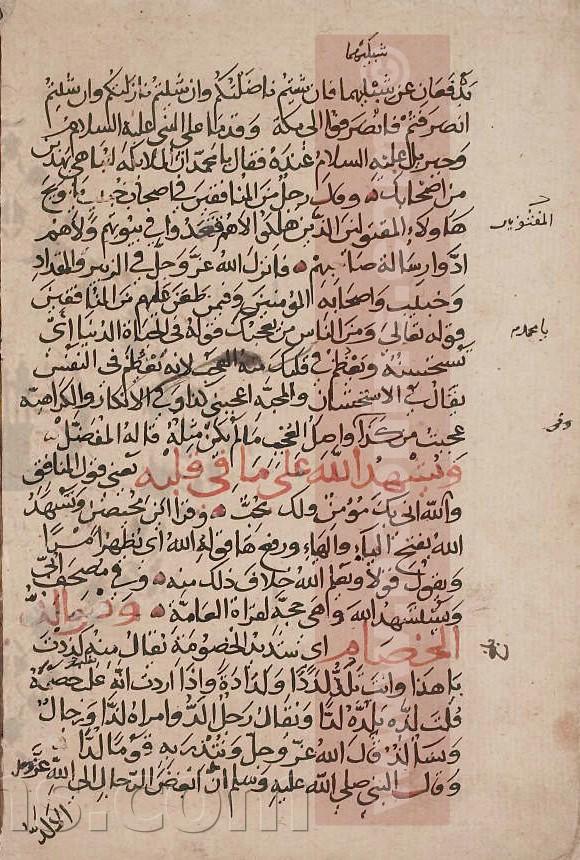 شبليهما
يدفعان عن شبليهما فان شيتم ناضلتكم وان شيتم نازلتكم وان شيتم
انصرفتم فانصرفوا الى مكة وقدما على النبي عليه السلام
وجبريل عليه السلام عنده فقال يا محمد ان الملايكة لتباهي بهذين
من اصحابك وقال رجل من المنافقين في اصحاب خبيب يا ويح
هاولاء المقتولين الذين هلكوا لاهم قعدوا في بيوتهم ولا هم
المفتونين
ادوا رسالة صاحبهم فانزل الله عز وجل في الزبير والمقداد
وخبيب واصحابه المؤمنين وفيمن طعن عليهم من المنافقين
قوله تعالى ومن الناس من يعجبك قوله في الحياة الدنيا أي
تستحسنه ويعظم في قلبك منه العجب لانه يعظم في النفس
يقال في الاستحسان والمحبة اعجبني كذا وفي الانكار والكراهية
عجبت من كذا واصل العجب ما لم يكن مثله قاله المفضل
ويشهد الله على ما في قلبه يعني قول المنافق
والله اني بك مؤمن ولك محب وقرا ابن محيصن ويشهد
الله بفتح الياء والهاء ورفع هاء قوله الله اي يظهر امرا
ويقول قولا ويعلم الله خلاف ذلك منه وفي مصحف ابي
ويستشهد الله وهي حجة لقراة العامة وهو الد
الخصام اي شديد الخصومة يقال منه لددت
يا هذا وانت تلد لددا ولدادة واذا اردت انه غلب خصمه
قلت لده يلده لدا ويقال رجل الد وامراة لدا ورجال
ونسا لد قال الله عز وجل وتنذر به قوما لدا
وقال النبي صلى الله عليه وسلم ان ابغض الرجال الى الله عز وجل
الالد